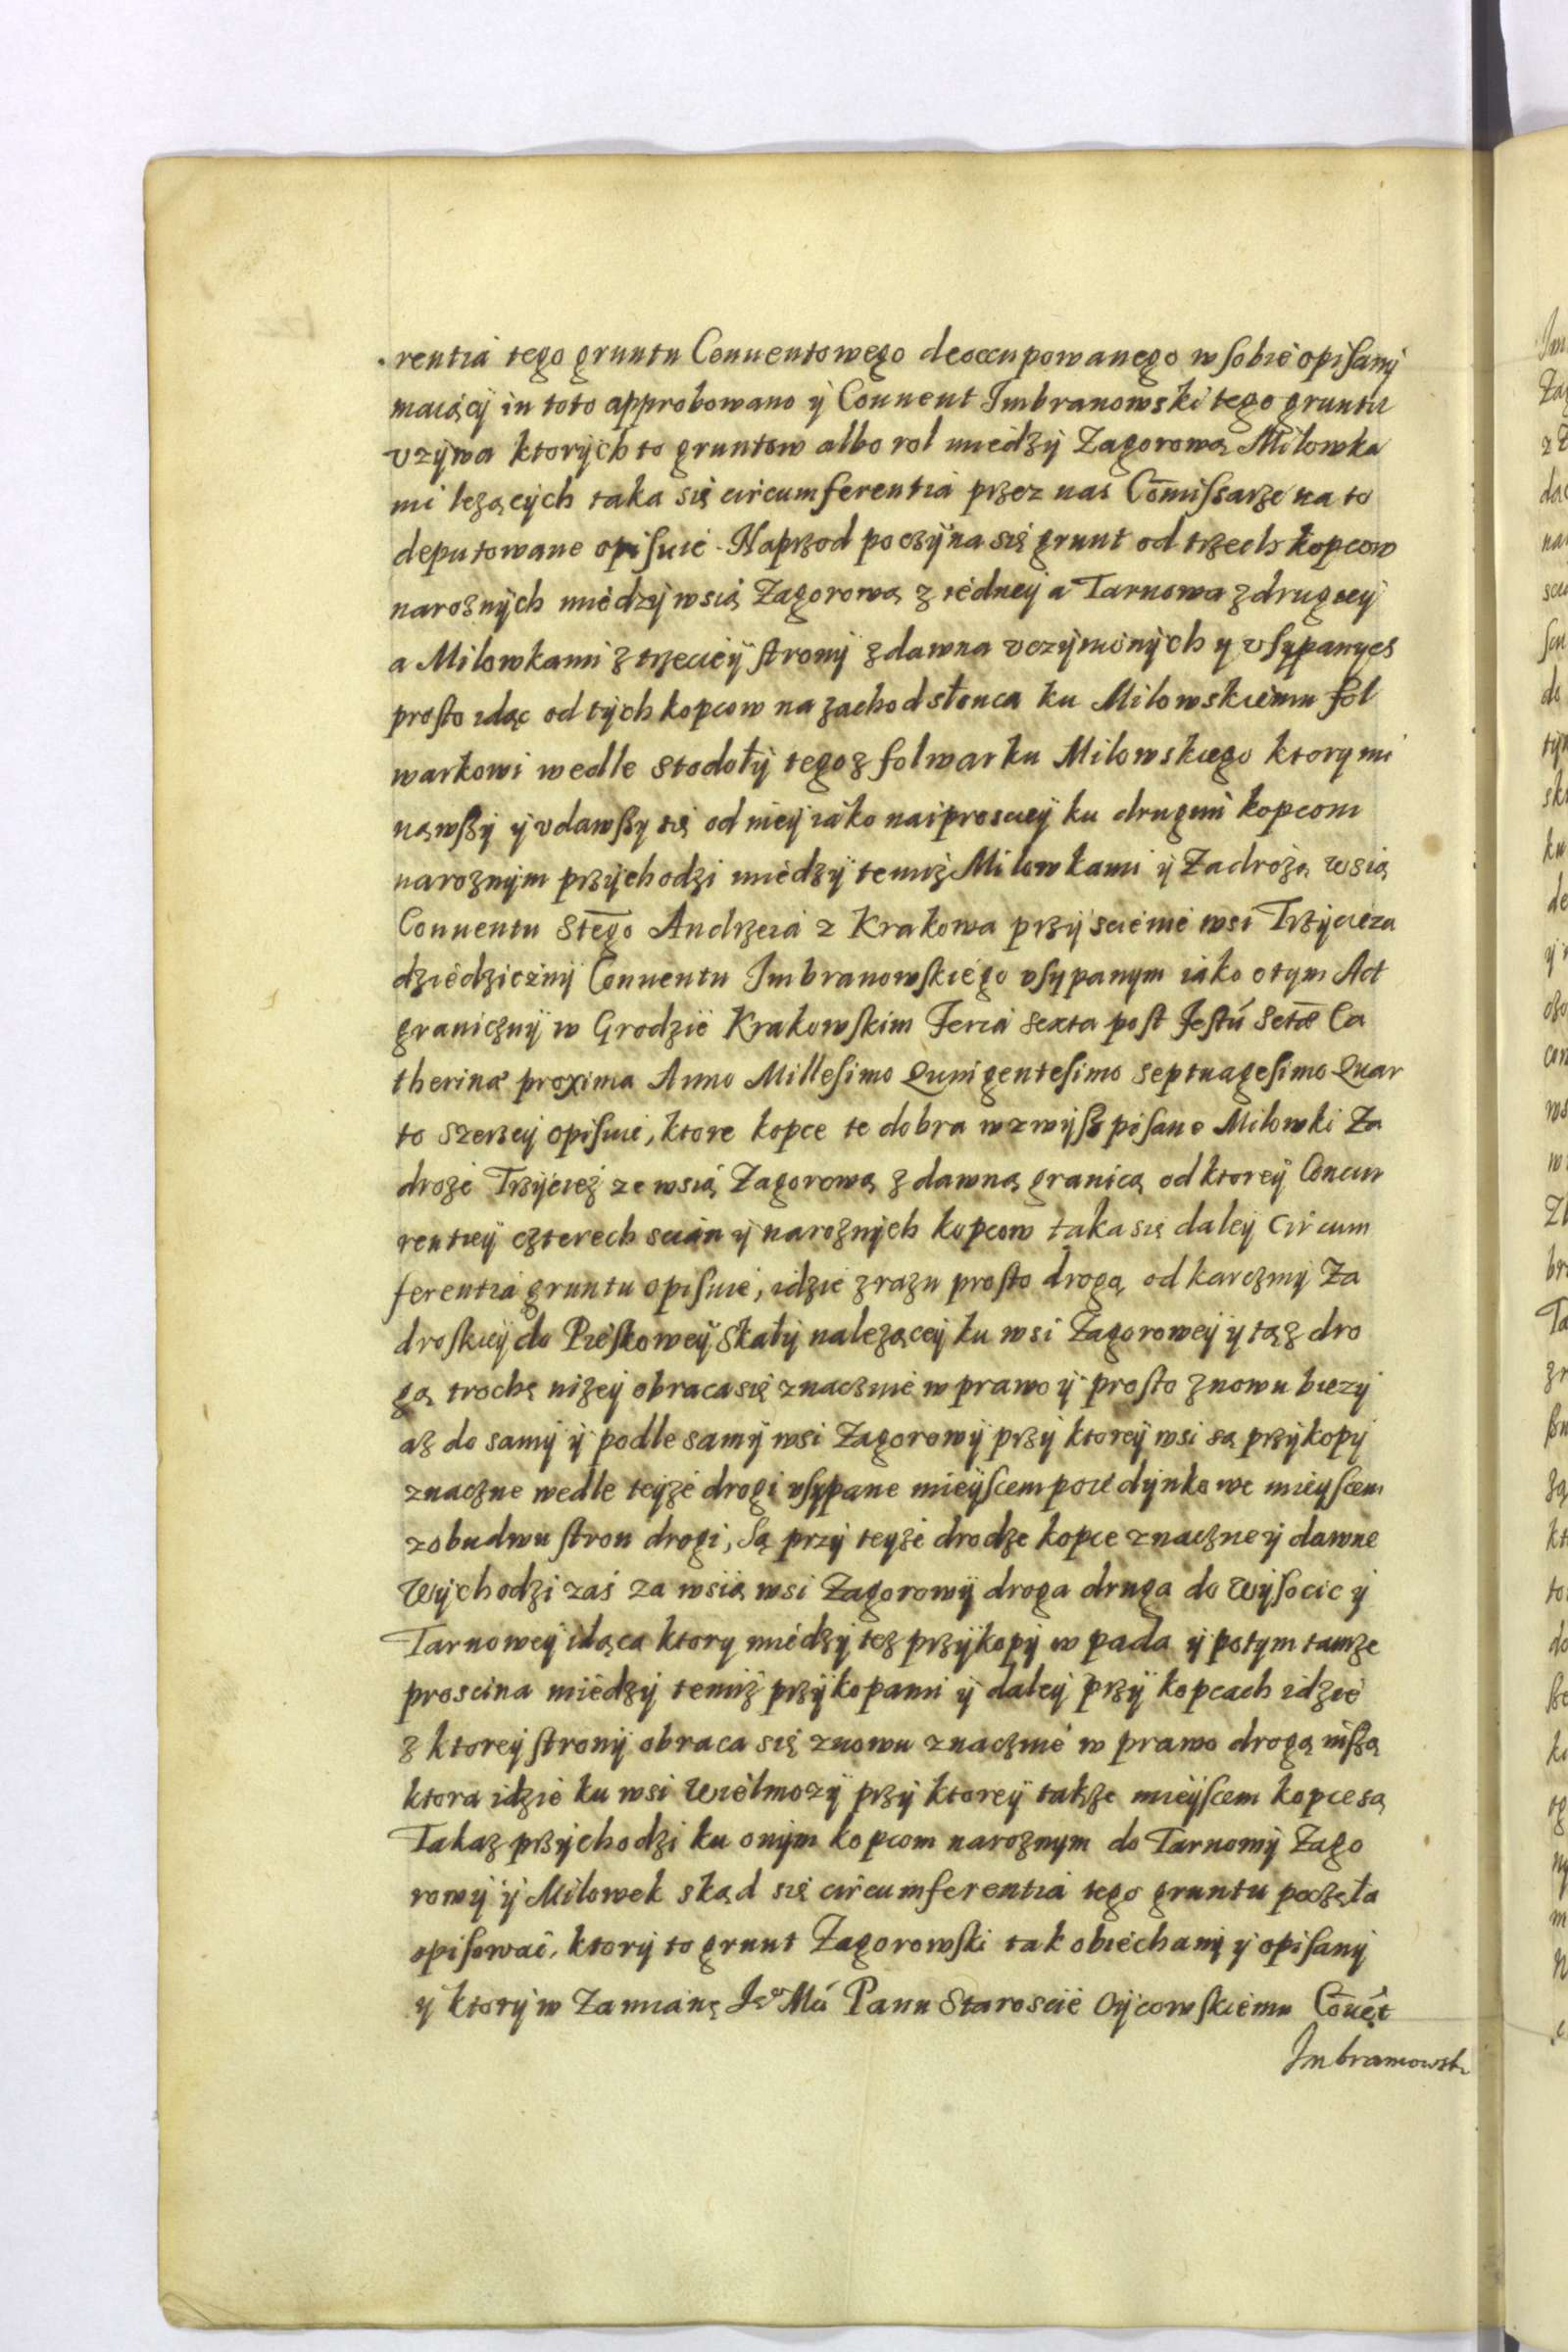 rentia tego gruntu Conuentowego deoccupowanego w sobie opisany
maiący in toto approbowano ÿ Conuent Imbranowski tego gruntu
vzÿwa ktorÿch to gruntow albo rol miedzÿ Zagorową Milowka
mi lezącÿch taka się circumferentia przez nas Com̄issarze na to
deputowane opisuie. Naprzod poczÿna się grunt od trzech kopcow
naroznÿch miedzÿ wsią Zagorową z iedneÿ a Tarnowa z drugieÿ
a Milowkami z trzecieÿ stronÿ zdawna vczÿnionÿch y vsypanyeh
prosto idąc od tÿch kopcow na zachod słonca ku Milowskiemu fol
warkowi wedle stodołÿ tegoz folwarku Milowskiego ktory mi
nąwszÿ ÿ vdawszy się od nieÿ iako naiprosciey ku drugim kopcom
naroznym przÿchodzi miedzÿ temiz Milowkami ÿ Zadroze wsią
Conuentu Stego Andrzeia z Krakowa przÿ scienie wsi Trzÿcieza
dziedzicznÿ Conuentu Imbranowskiego vsypanym iako o tym Act
granicznÿ w Grodzie Krakowskim Feria Sexta post Festū Sctæ Ca
therinæ proxima Anno Millesimo Quingentesimo Septuagesimo Quar
to szerzeÿ opisuie, ktore kopce te dobra wzwÿsz pisane Milowki Za
droze Trzÿciez ze wsią Zagorową z dawna granicą od ktoreÿ Concur
rentieÿ czterech scian ÿ naroznÿch kopcow taka się daleÿ Circum
ferentia gruntu opisuie, idzie zrazu prosto drogą od karczmÿ Za
droskieÿ do Pieskoweÿ Skałÿ naleząceÿ ku wsi Zagoroweÿ ÿ tąz dro
gą trochę nizeÿ obraca się znacznie w prawo ÿ prosto znowu biezÿ
az do samÿ ÿ podle samÿ wsi Zagorowÿ przÿ ktoreÿ wsi są przykopÿ
znaczne wedle teÿze drogi vsypane mieÿscem poiedÿnkowe mieyscem
z obudwu stron drogi, Są przÿ teyze drodze kopce znaczne ÿ dawne
Wÿchodzi zaś za wsią wsi Zagorowÿ droga druga do Wÿsocic ÿ
Tarnoweÿ idąca ktory miedzÿ tez przÿkopÿ wpada ÿ potym tamze
proscina miedzÿ temiz przÿkopami ÿ daleÿ przÿ kopcach idzie
z ktoreÿ stronÿ obraca się znowu znacznie w prawo drogą niszą
ktora idzie ku wsi Wielmozÿ przÿ ktoreÿ takze mieÿscem kopce są
Takaz przÿchodzi ku onÿm kopcom naroznym do Tarnowÿ Zago
rowÿ ÿ Milowek skąd się circumferentia tego gruntu poczęła
opisować, ktorÿ to grunt Zagorowski tak obiechanÿ ÿ opisanÿ
y ktorÿ w Zamianę Je° Mći Panu Staroscie Oÿcowskiemu Cōuēt
Imbramowsk